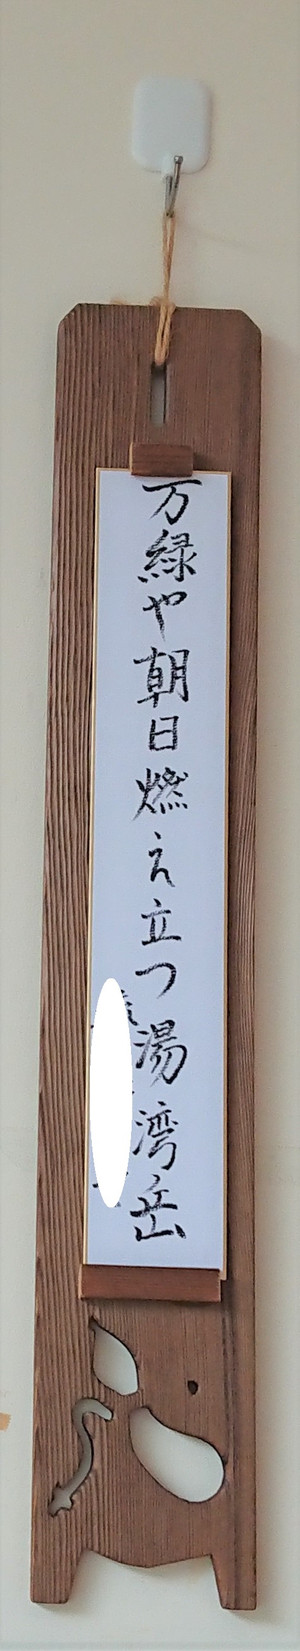 万緑や朝日燃え立つ湯湾岳